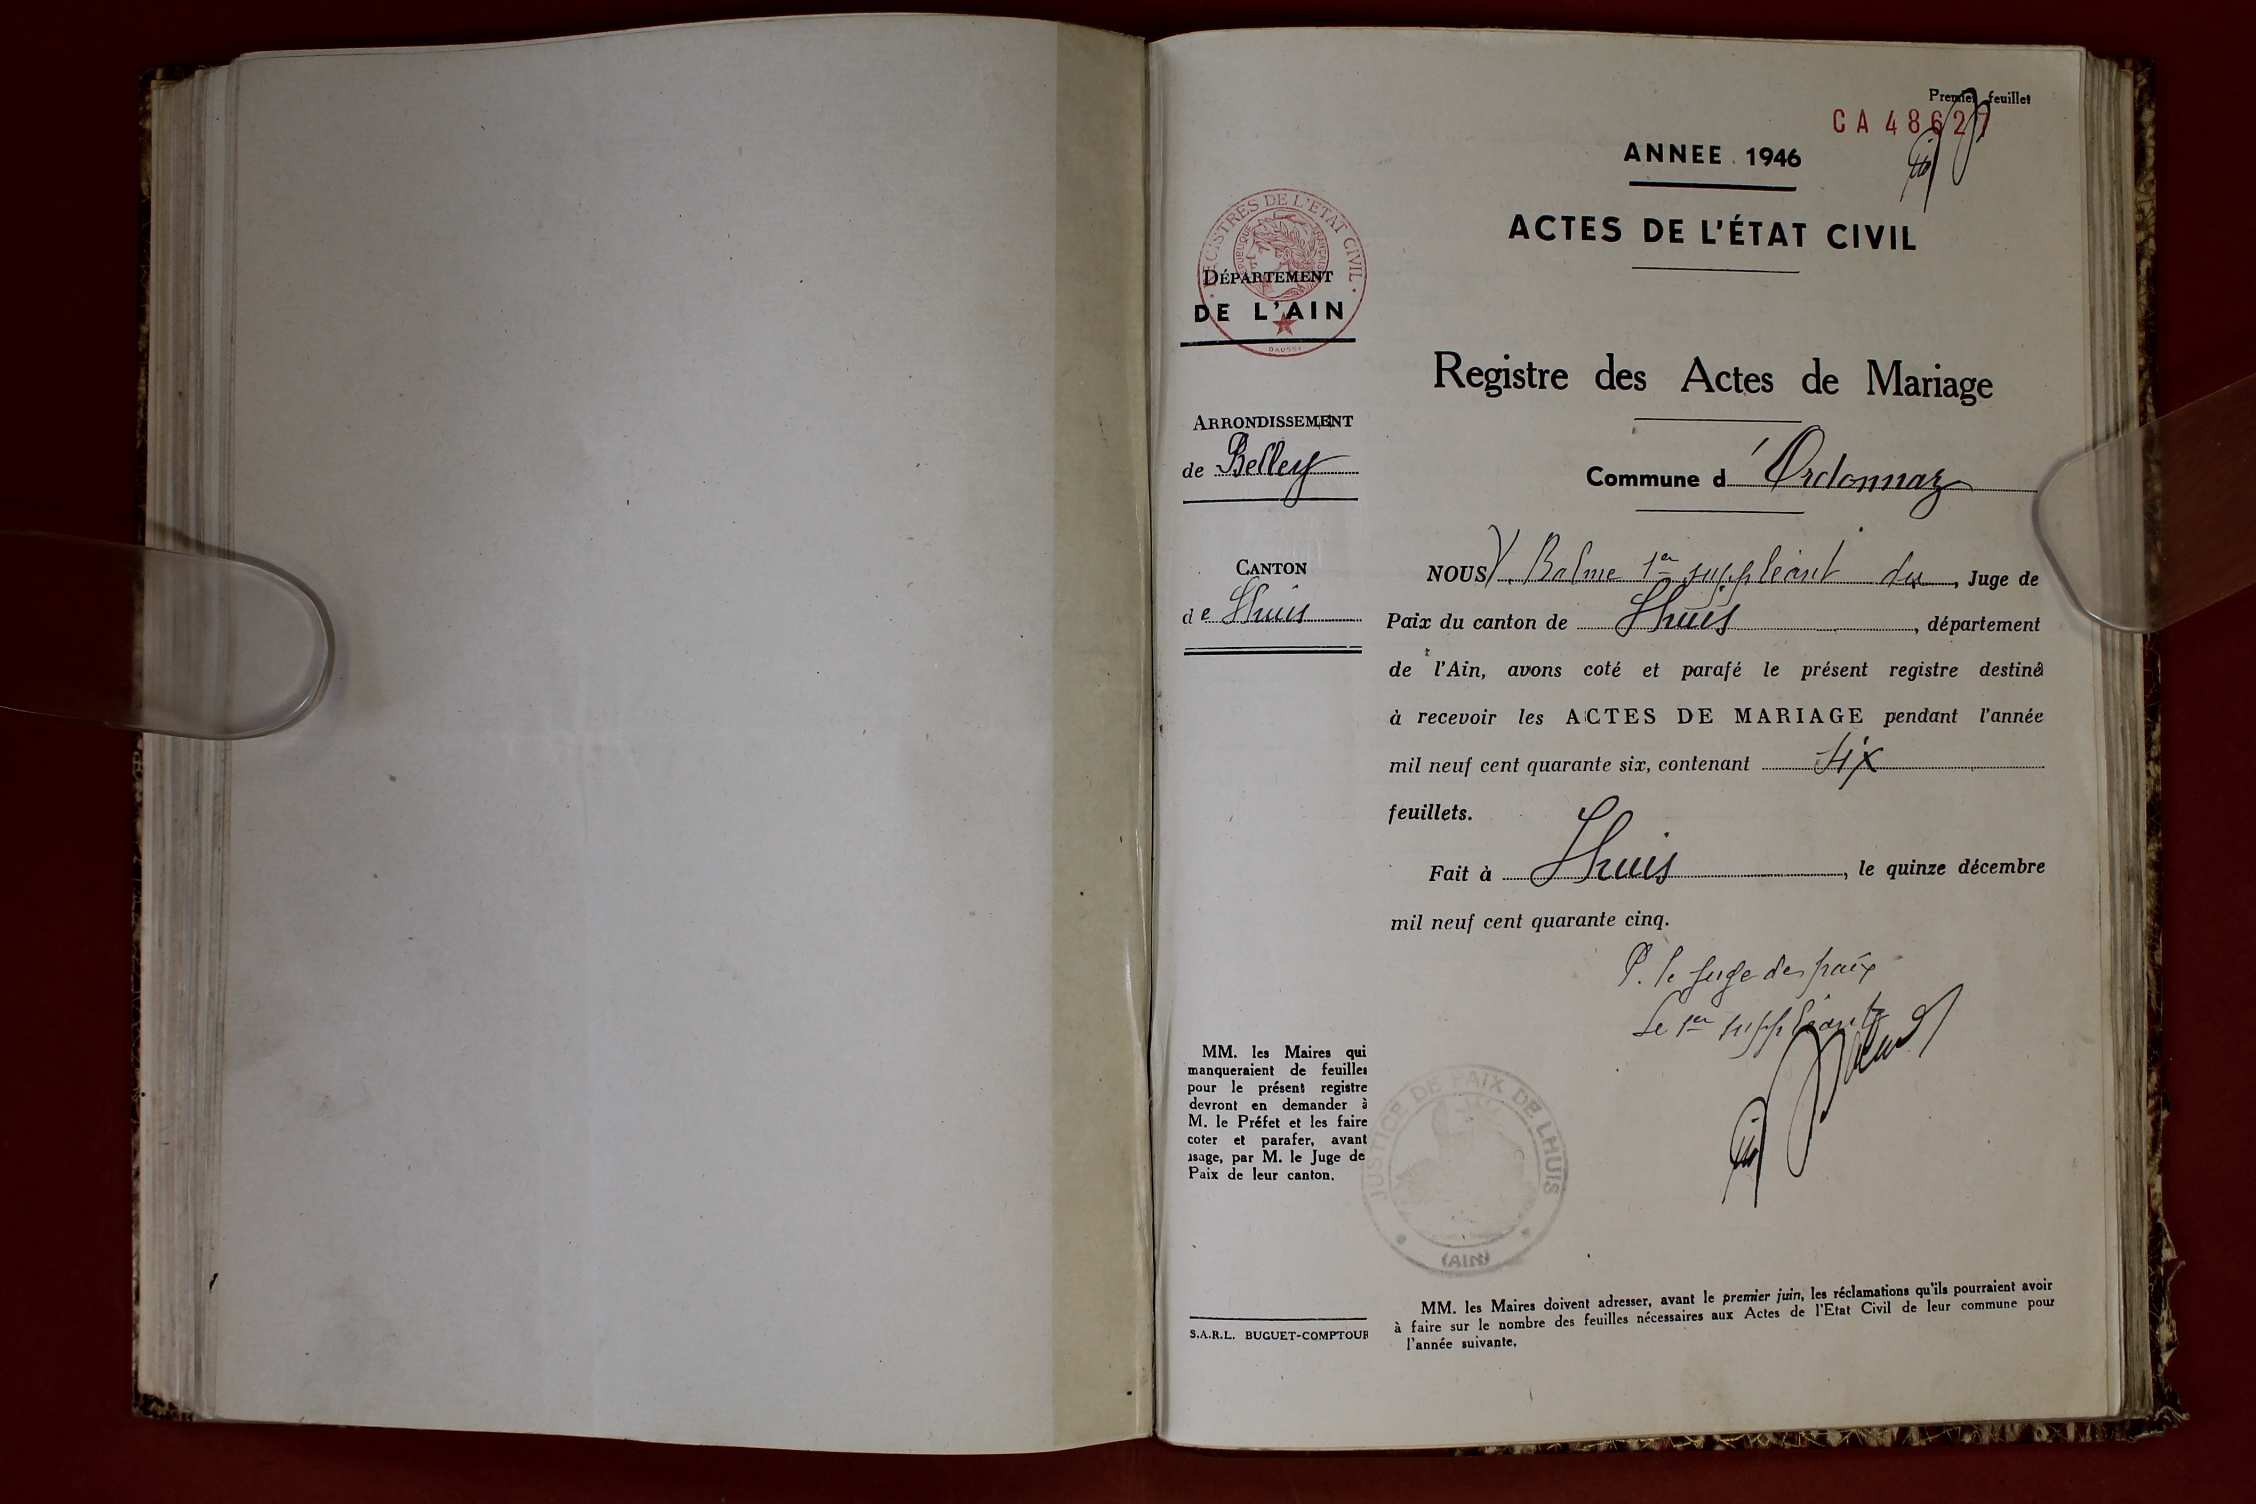 Premier feuillet
CA 48627
ANNEE 1946
ACTES DE L'ÉTAT CIVIL
REGISTRES DE L'ETAT CIVIL
REPUBLIQUE FRANÇAISE
DÉPARTEMENT
DE L'AIN
Registre des Actes de Mariage
ARRONDISSEMENT
de Belley
Commune d'Ordonnaz
CANTON
de Lhuis
NOUS V. Balme 1er suppléant du, Juge de
Paix du canton de Lhuis, département
de l'Ain, avons coté et parafé le présent registre destiné
à recevoir les ACTES DE MARIAGE pendant l'année
mil neuf cent quarante six, contenant six
feuillets.
Fait à Lhuis, le quinze décembre
mil neuf cent quarante cinq.
P. le Juge de paix
Le 1er suppléant
MM. les Maires qui
manqueraient de feuilles
pour le présent registre
devront en demander à
M. le Préfet et les faire
coter et parafer, avant
usage, par M. le Juge de
Paix de leur canton.
JUSTICE DE PAIX DE LHUIS
(AIN)
MM. les Maires doivent adresser, avant le premier juin, les réclamations qu'ils pourraient avoir
à faire sur le nombre des feuilles nécessaires aux Actes de l'Etat Civil de leur commune pour
l'année suivante.
S.A.R.L. BUGUET-COMPTOUR